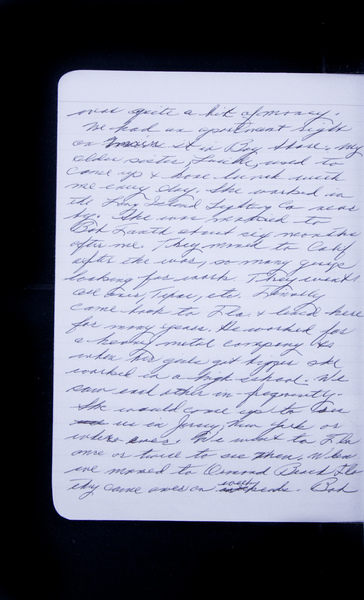 was quite a bit of money.
We had an apartment right
on st in Bay Shore. My
older sister, Lucille, used to
come up & have lunch with
me every day. She worked in
the Long Island Lighting Co near
by. She was married to
Bob about six months
after me. They moved to Calif
after the war, so many guys
looking for work. They went
all over, Texas, etc. Finally
came back to Fla. & lived here
for many years. He worked for
a heavy metal company &
when girls got bigger she
worked in a high school. We
saw each other in-frequently.
She would come up to see
us in Jersey, New York or
where ever. We went to Fla
one or twice to see them. When
we moved to Ormond Beach Fla
they came over on weekends. Bob